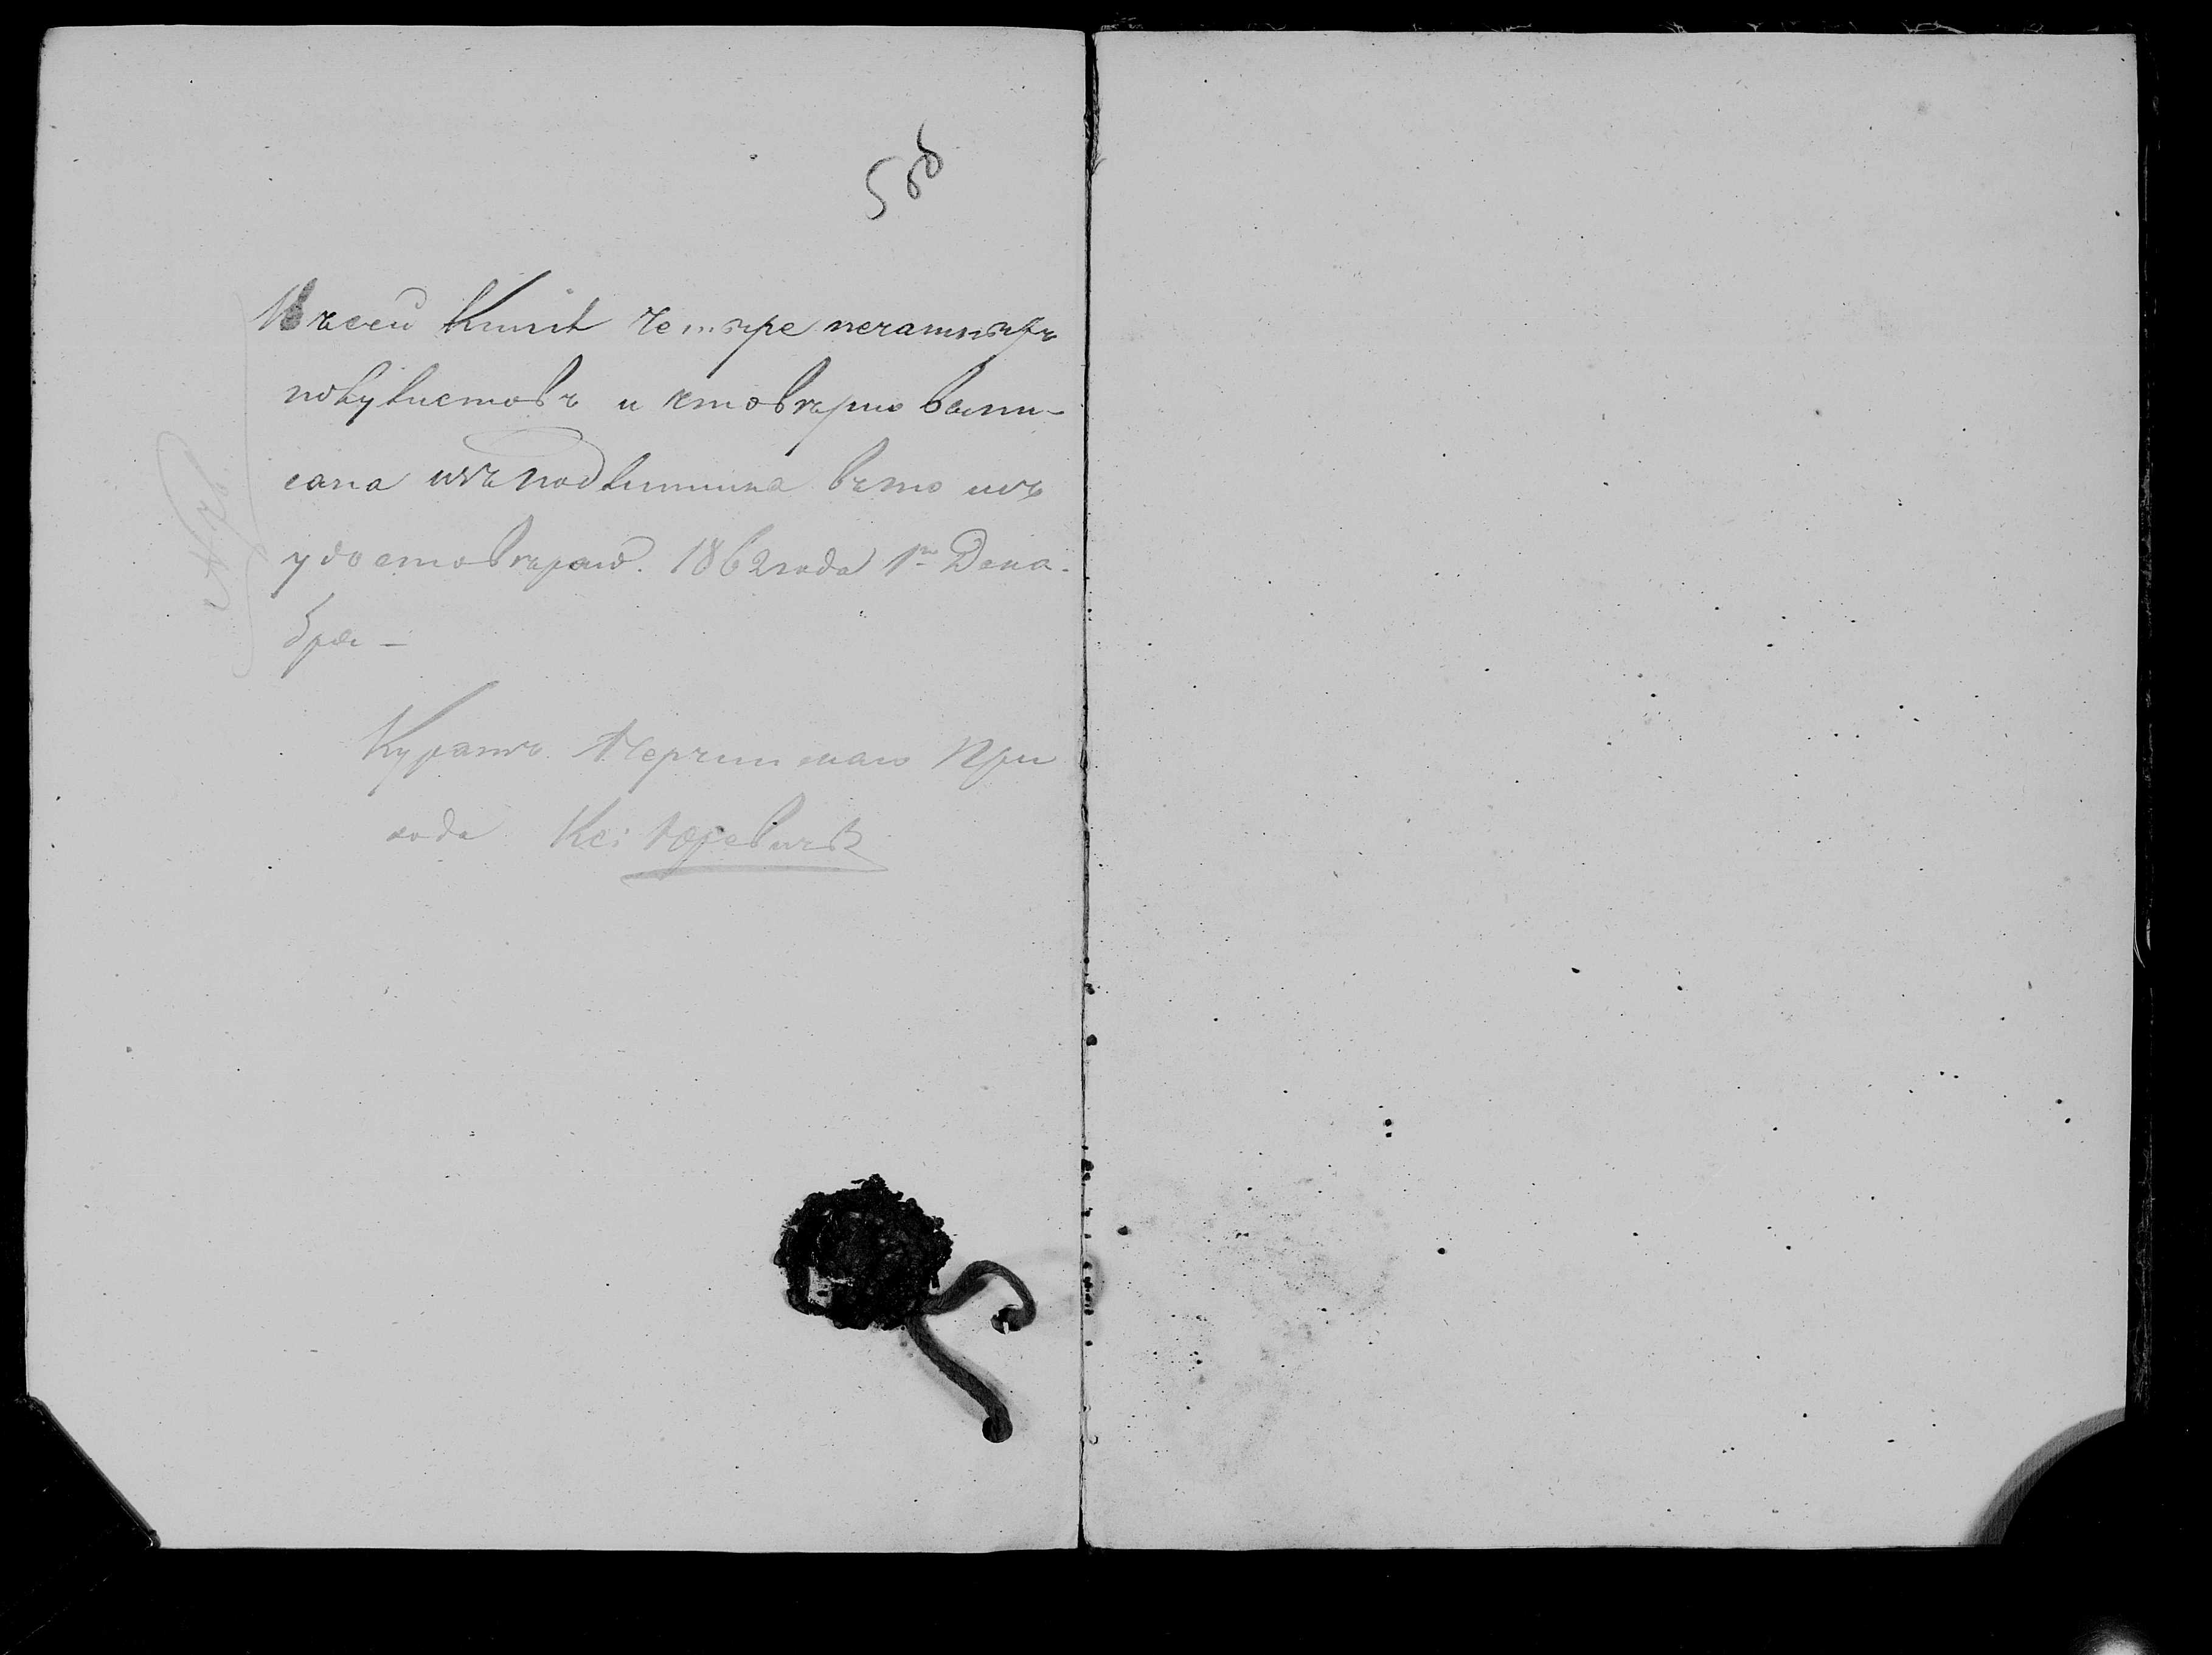 5об
Въ сей Книгѣ четыре печатныхъ
полулистовъ и что вѣрно выпи-
сана изъ подлинника въ томъ
удостовѣряю. 1862 года 1го Дека-
бря —
Куратъ При
хода Кс: Юревичъ